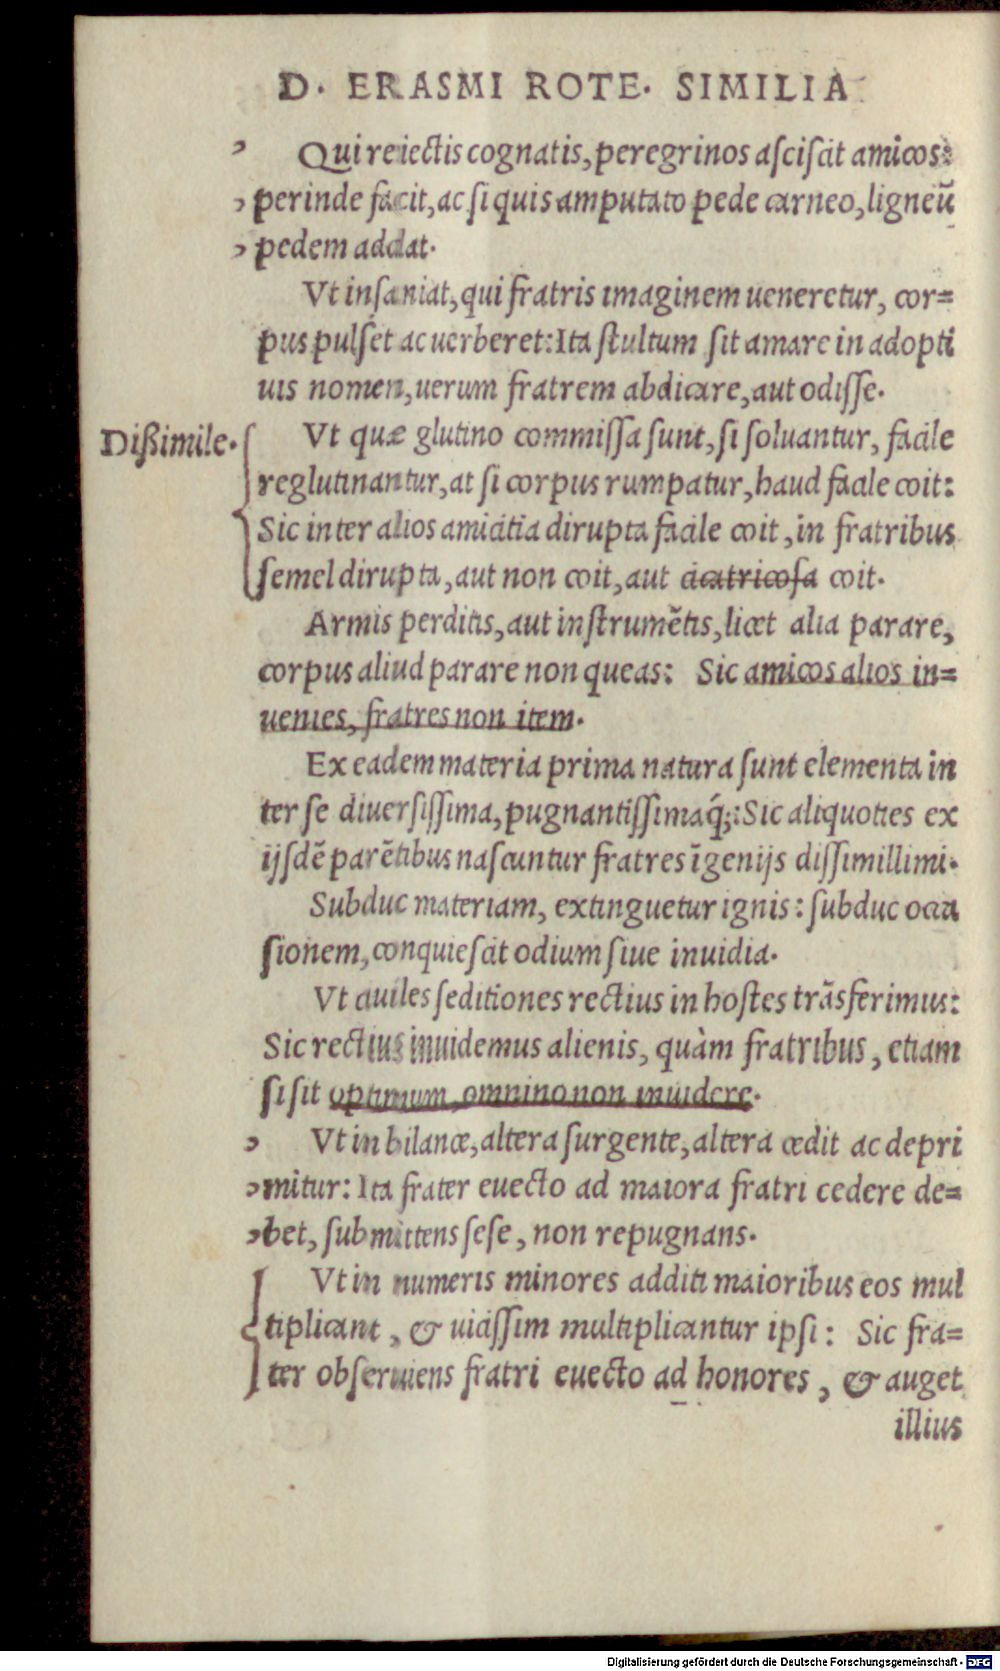 D. ERASMI ROTE. SIMILIA
Qui reiectis cognatis, peregrinos asciscit amicos:
perinde facit, ac si quis amputato pede carneo, ligneū
pedem addat.
Vt insaniat, qui fratris imaginem ueneretur, cor=
pus pulset ac uerberet: Ita stultum sit amare in adopti
uis nomen, uerum fratrem abdicare, aut odisse.
Dißimile.
Vt quæ glutino commissa sunt, si soluantur, facile
reglutinantur, at si corpus rumpatur, haud facile coit:
Sic inter alios amicitia dirupta facile coit, in fratribus
semel dirupta, aut non coit, aut cicatricosa coit.
Armis perditis, aut instrumētis, licet alia parare,
corpus aliud parare non queas: Sic amicos alios in=
uenies, fratres non item.
Ex eadem materia prima natura sunt elementa in
ter se diuersissima, pugnantissimaq́;: Sic aliquoties ex
ijsdē parētibus nascuntur fratres īgenijs dissimillimi.
Subduc materiam, extinguetur ignis: subduc occa
sionem, conquiescit odium siue inuidia.
Vt ciuiles seditiones rectius in hostes trāsferimus:
Sic rectius inuidemus alienis, quàm fratribus, etiam
si sit optimum omnino non inuidere.
Vt in bilance, altera surgente, altera cedit ac depri
mitur: Ita frater euecto ad maiora fratri cedere de=
bet, submittens sese, non repugnans.
Vt in numeris minores additi maioribus eos mul
tiplicant, & uicissim multiplicantur ipsi: Sic fra=
ter obseruiens fratri euecto ad honores, & auget
illius
Digitalisierung gefördert durch die Deutsche Forschungsgemeinschaft - DFG